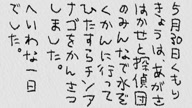 5月30日くもり
きょうは、あがさ
はかせと探偵団
のみんなで水ぞ
くかんに行って
ひたすらチンア
ナゴをかんさつ
しました。
へいわな一日
でした。